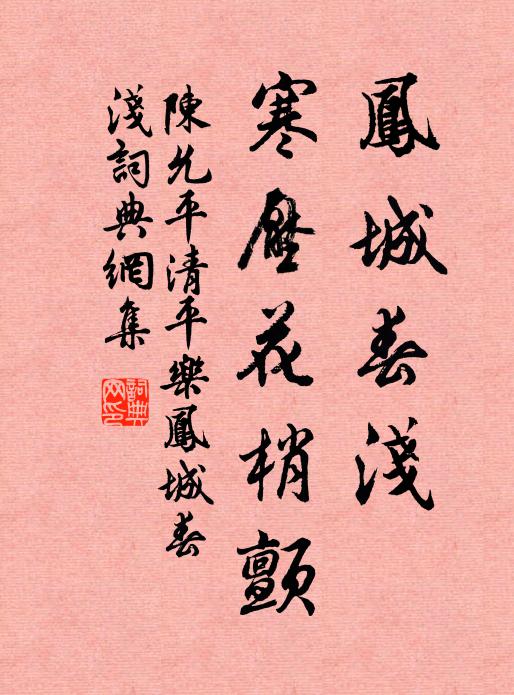 鳳城春淺
寒壓花梢顫
陳允平清平樂鳳城春
淺詞典網集
詞典網印